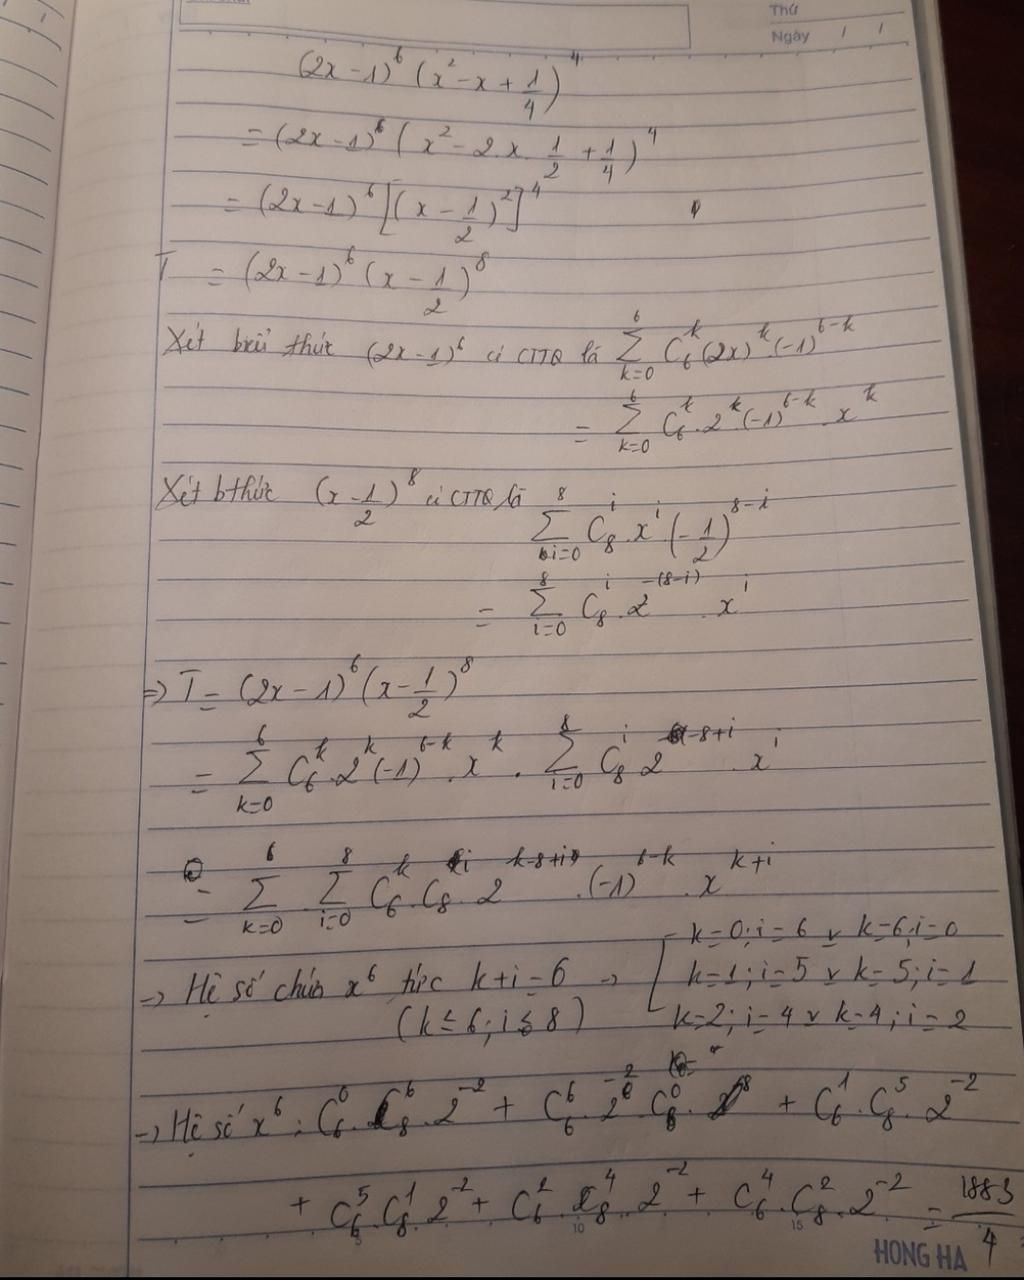 Thứ
Ngày / /
(2x-1)^6 (x^2 - x + 1/4)^4
= (2x-1)^6 (x^2 - 2.x. 1/2 + 1/4)^4
= (2x-1)^6 [(x - 1/2)^2]^4
T = (2x-1)^6 (x - 1/2)^8
Xét biểu thức (2x-1)^6 có CTTQ là ∑_{k=0}^{6} C_6^k (2x)^k.(-1)^{6-k}
= ∑_{k=0}^{6} C_6^k.2^k(-1)^{6-k}.x^k
Xét bthức (x - 1/2)^8 có CTTQ là ∑_{i=0}^{8} C_8^i.x^i(-1/2)^{8-i}
= ∑_{i=0}^{8} C_8^i.2^{-(8-i)}.x^i
=> T = (2x-1)^6 (x - 1/2)^8
= ∑_{k=0}^{6} C_6^k.2^k(-1)^{6-k}.x^k . ∑_{i=0}^{8} C_8^i 2^{-8+i}.x^i
= ∑_{k=0}^{6} ∑_{i=0}^{8} C_6^k.C_8^i.2^{k-8+i}.(-1)^{6-k}.x^{k+i}
-> Hệ số chứa x^6 tức k+i=6 -> [ k=0;i=6 v k=6;i=0
k=1;i=5 v k=5;i=1
(k≤6;i≤8) k=2;i=4 v k=4;i=2
-> Hệ số x^6: C_6^0.C_8^6.2^{-2} + C_6^6.2^{-2}.C_8^0. + C_6^1.C_8^5.2^{-2}
+ C_6^5.C_8^1 2^{-2} + C_6^2.C_8^4.2^{-2} + C_6^4.C_8^2.2^{-2} = 1883/4
5 10 15
HONG HA